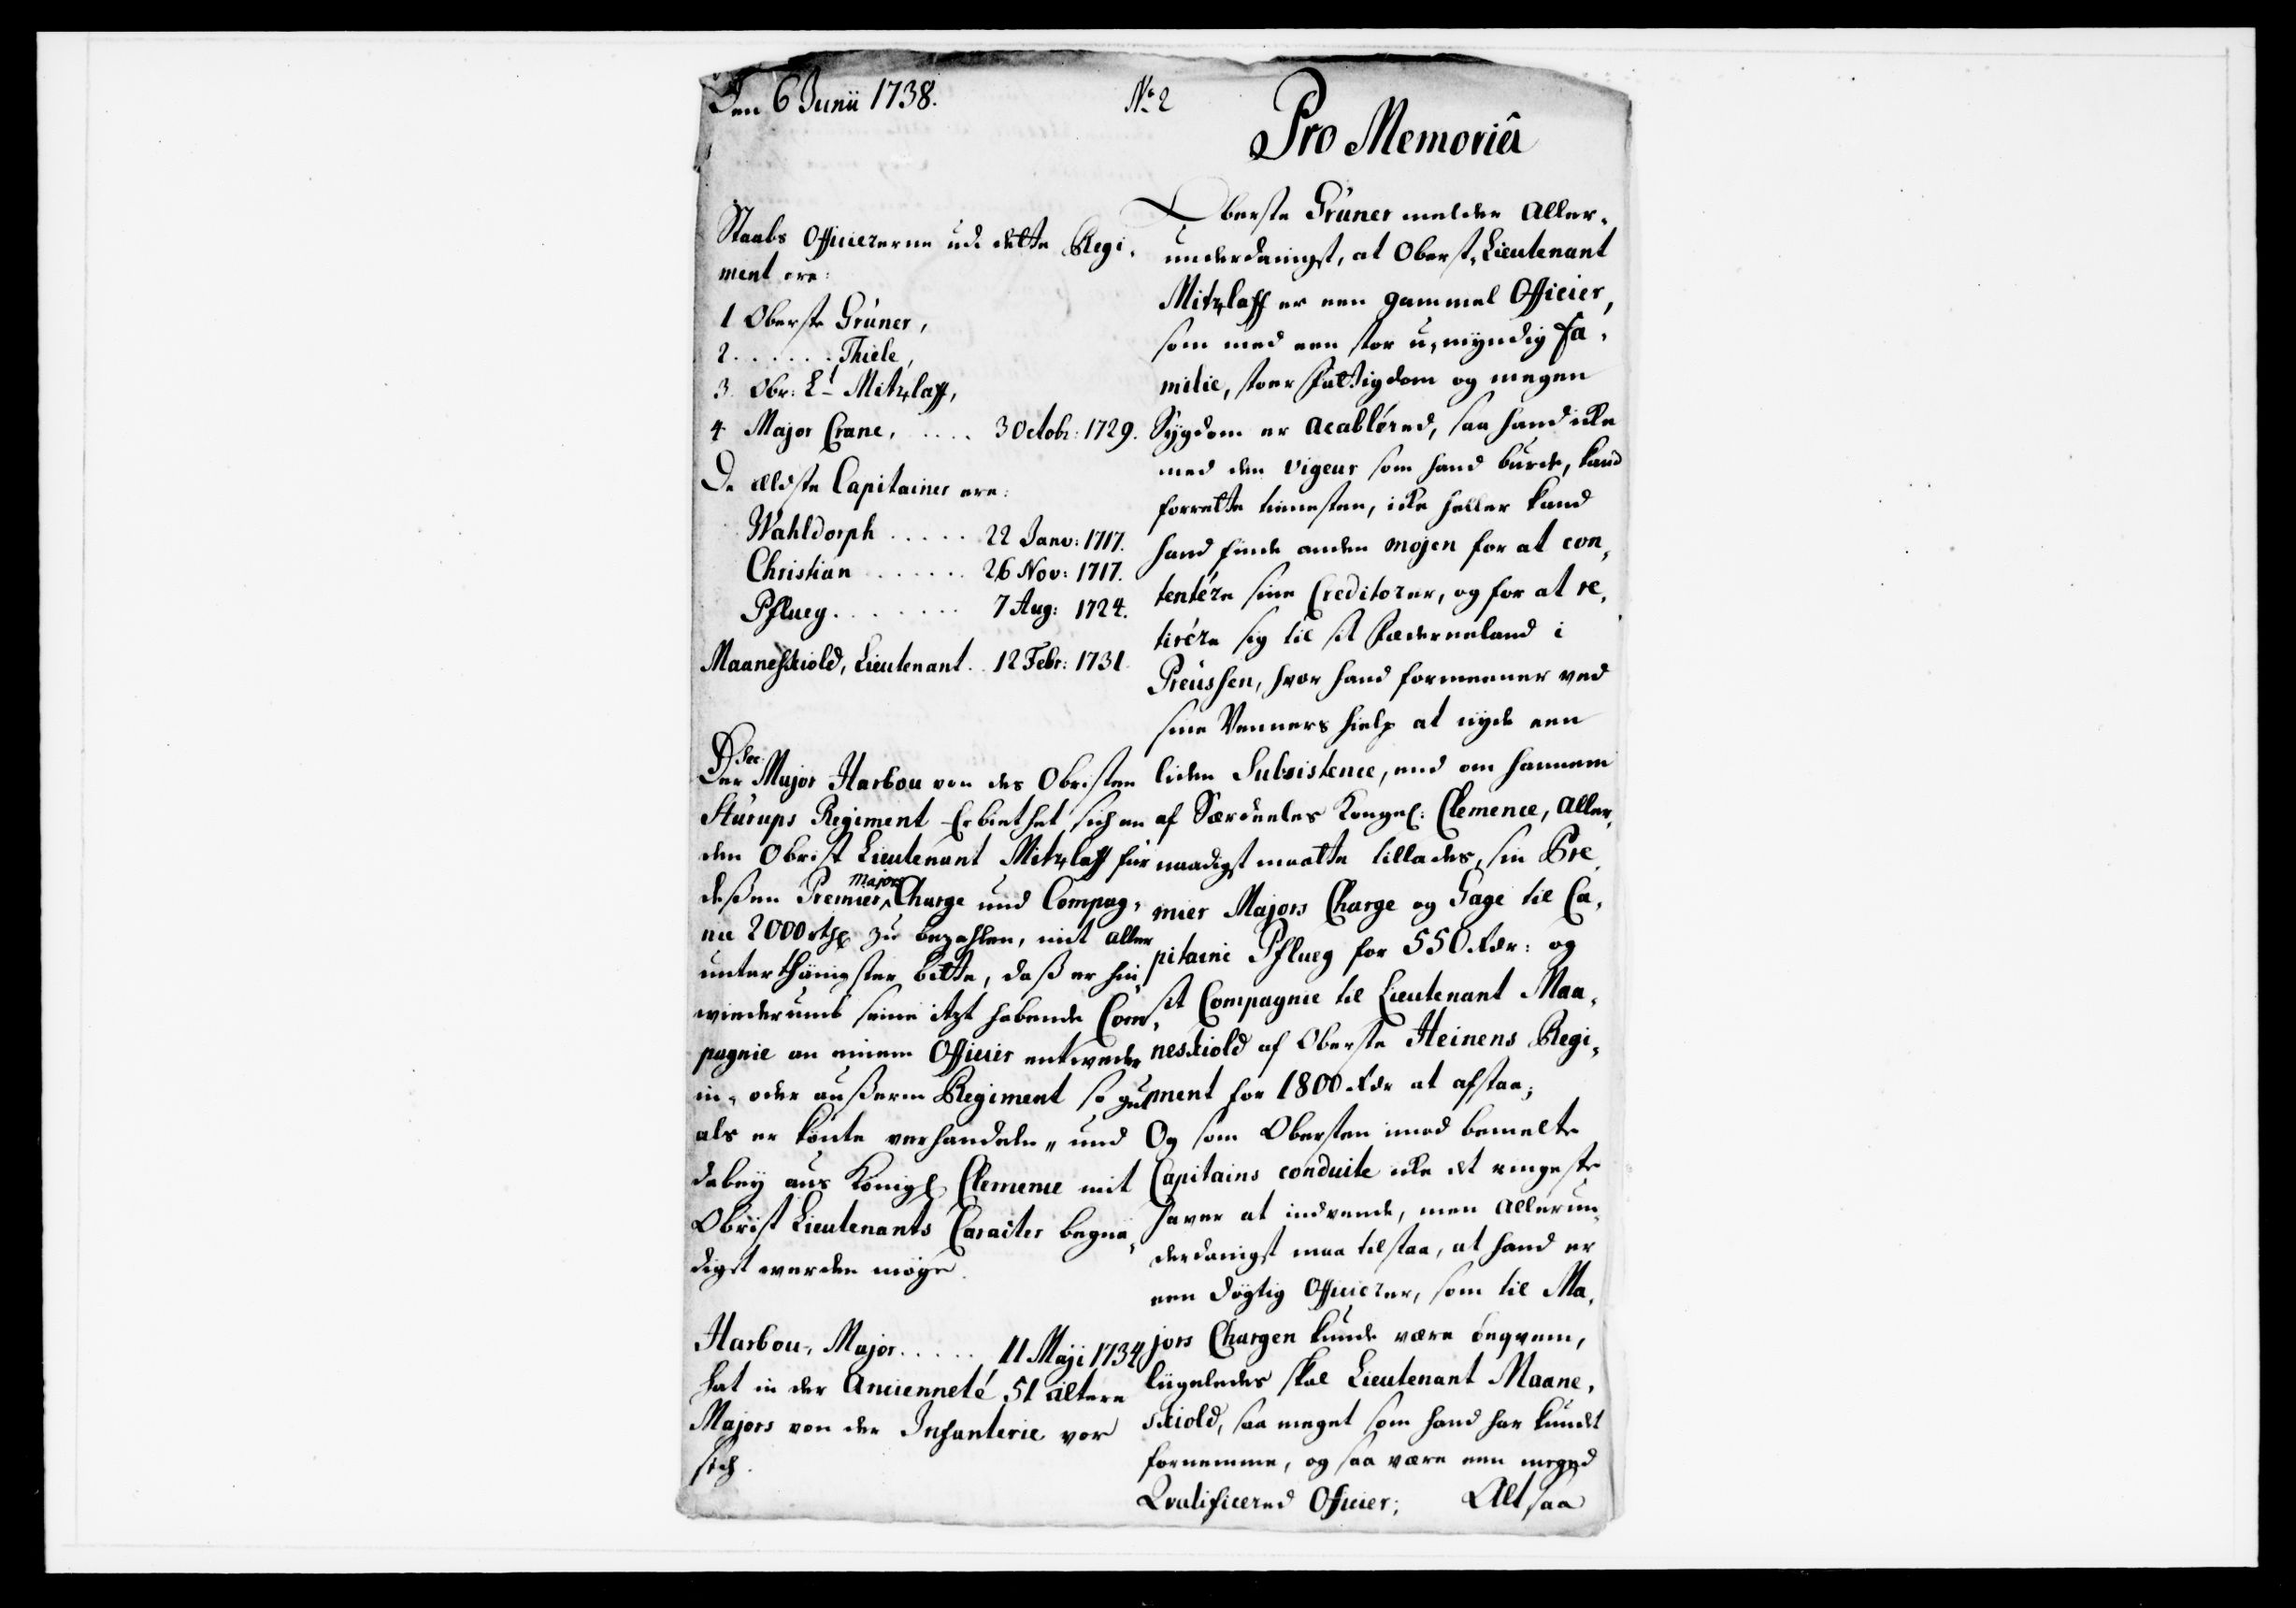 Den 6 Junii 1738.
No 2
Pro Memoriâ
Staabs Officiererne udi dette Regi-
ment ere:
1 Oberste Grüner,
2 . . . . . . Thiele,
3. Obr: Lt Mitzlaff,
4 Major Crane, . . . . 3 Octobr: 1729.
De ældste Capitainer ere:
Wahldorph . . . . . 22 Janv: 1717.
Christian . . . . . . 26 Nov: 1717.
Pflueg . . . . . . . 7 Aug: 1724.
Maaneskiold, Lieutenant. . 12 Febr: 1731.
Der Major Harbou von des Obristen
Sturups Regiment Erbiethet sich an
den Obrist Lieutenant Mitzlaff für
deßen Premier Majors Charge und Compag-
nie 2000 rthl zu bezahlen, mit aller
unterthänigster bitte, daß er hin-
wiederumb seine itzt habende Com-
pagnie an einem Officier entweder
in- oder außerm Regiment so gut
als er könte verhandeln, und
dabey aus Königl Clemence mit
Obrist Lieutenants Caracter begna-
diget werden möge.
Harbou, Major . . . . . 11 Maji 1734
hat in der Ancienneté 51 ältere
Majors von der Infanterie vor
sich.
Oberste Grüner melder Aller-
underdanigst, at Oberst-Lieutenant
Mitzlaff er een gammel Officier,
som med een stor u-myndig Fa-
milie, stoer Fattigdom og megen
Sygdom er acabléred, saa hand icke
med den vigeur som hand burde, kand
forrette tienesten, icke heller kand
hand finde anden mojen for at con-
tentére sine Creditorer, og for at re-
tirére sig til sit Fæderneland i
Preussen, hvor hand formeener ved
sine Venners hielp at nyde een
liden Subsistence, end om hannem
af Særdeeles Kongel: Clemence, Aller-
naadigst maatte tillades, sin Pre-
mier Majors Charge og Gage til Ca-
pitaine Pflueg for 550 Rdr: og
sit Compagnie til Lieutenant Maa-
neskiold af Oberste Heinens Regi-
ment for 1800 Rdr at afstaa;
Og som Obersten imod bemelte
Capitains conduite icke det ringeste
haver at indvende, men Allerun-
derdanigst maa tilstaa, at hand er
een dygtig Officerer, som til Ma-
jors Chargen kunde være beqvem,
liigeledes skal Lieutenant Maane-
skiold, saa meget som hand har kundet
fornemme, og saa være een meged
Qvalificered Officier; Alt saa